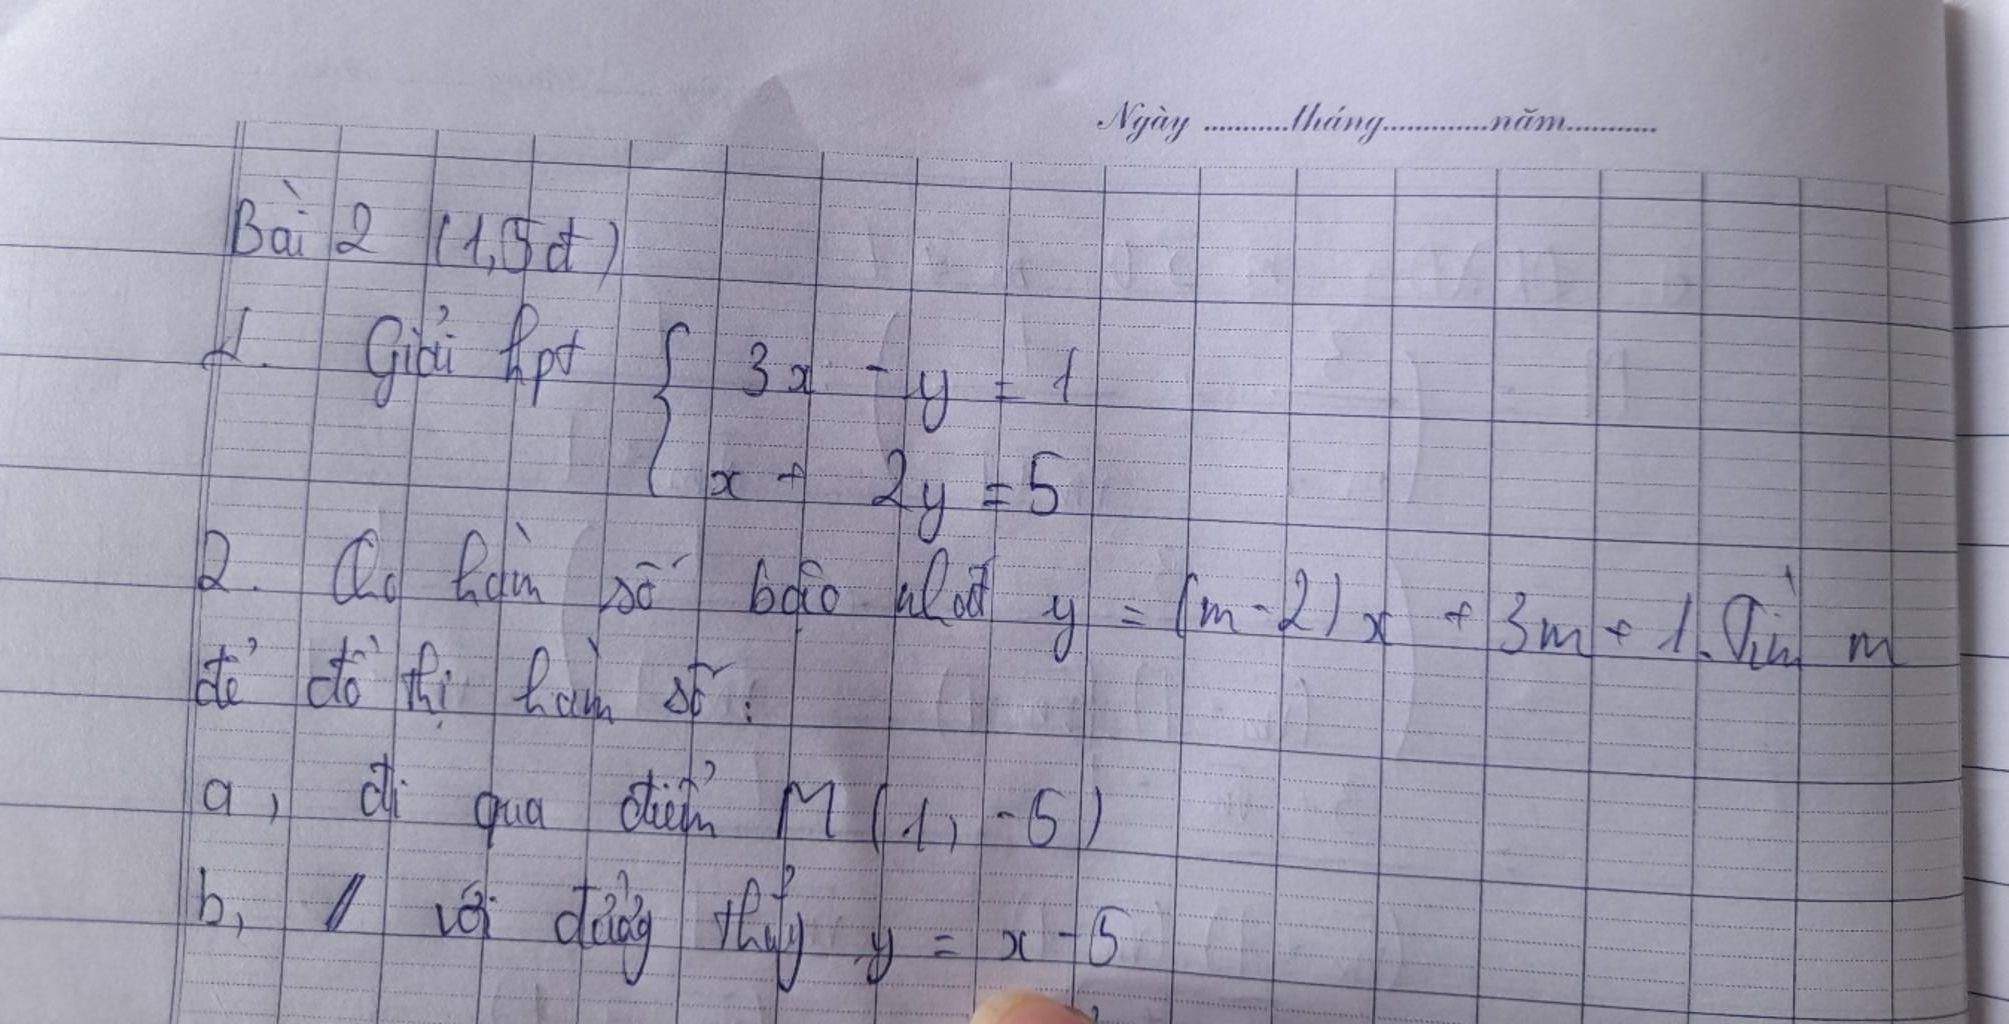 Ngày ...........tháng.............năm...........
Bài 2 (1,5đ)
1. Giải hpt { 3x - y = 1
x + 2y = 5
2. Cho hàm số bậc nhất y = (m - 2) x + 3m + 1. Tìm m
để đồ thị hàm số :
a, đi qua điểm M (1, -5)
b, // với đường thẳng y = x - 5